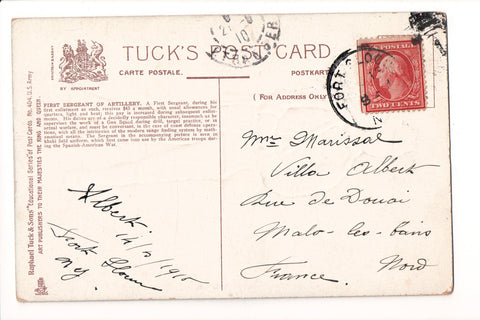 TUCK'S POST CARD
CARTE POSTALE. POSTKARTE
BY APPOINTMENT
(FOR ADDRESS ONLY
FIRST SERGEANT OF ARTILLERY. A First Sergeant, during his
first enlistment as such, receives $45 a month, with usual allowances for
quarters, light and heat; this pay is increased during subsequent enlistments.
His duties are of a decidedly responsible character, inasmuch as he
supervises the work of a Gun Squad during drill, target practice, or in
actual warfare, and must be conversant, in the case of coast defence operations,
with all the intricacies of the modern range finding system by mathematical
notes. The Sergeant in the accompanying picture is seen in
khaki field uniform, which first came into use by the American troops during
the Spanish-American War.
Raphael Tuck & Sons' "Educational Series" of Post Cards No. 404, U.S. Army
ART PUBLISHERS TO THEIR MAJESTIES THE KING AND QUEEN.
FORT
TWO CENTS
10
Mme Marissal
Villa Albert
Rue de Douai
Malo-les-bains
Nord
France.
Albert
14/3/1910
Fort Slocum
N.Y.